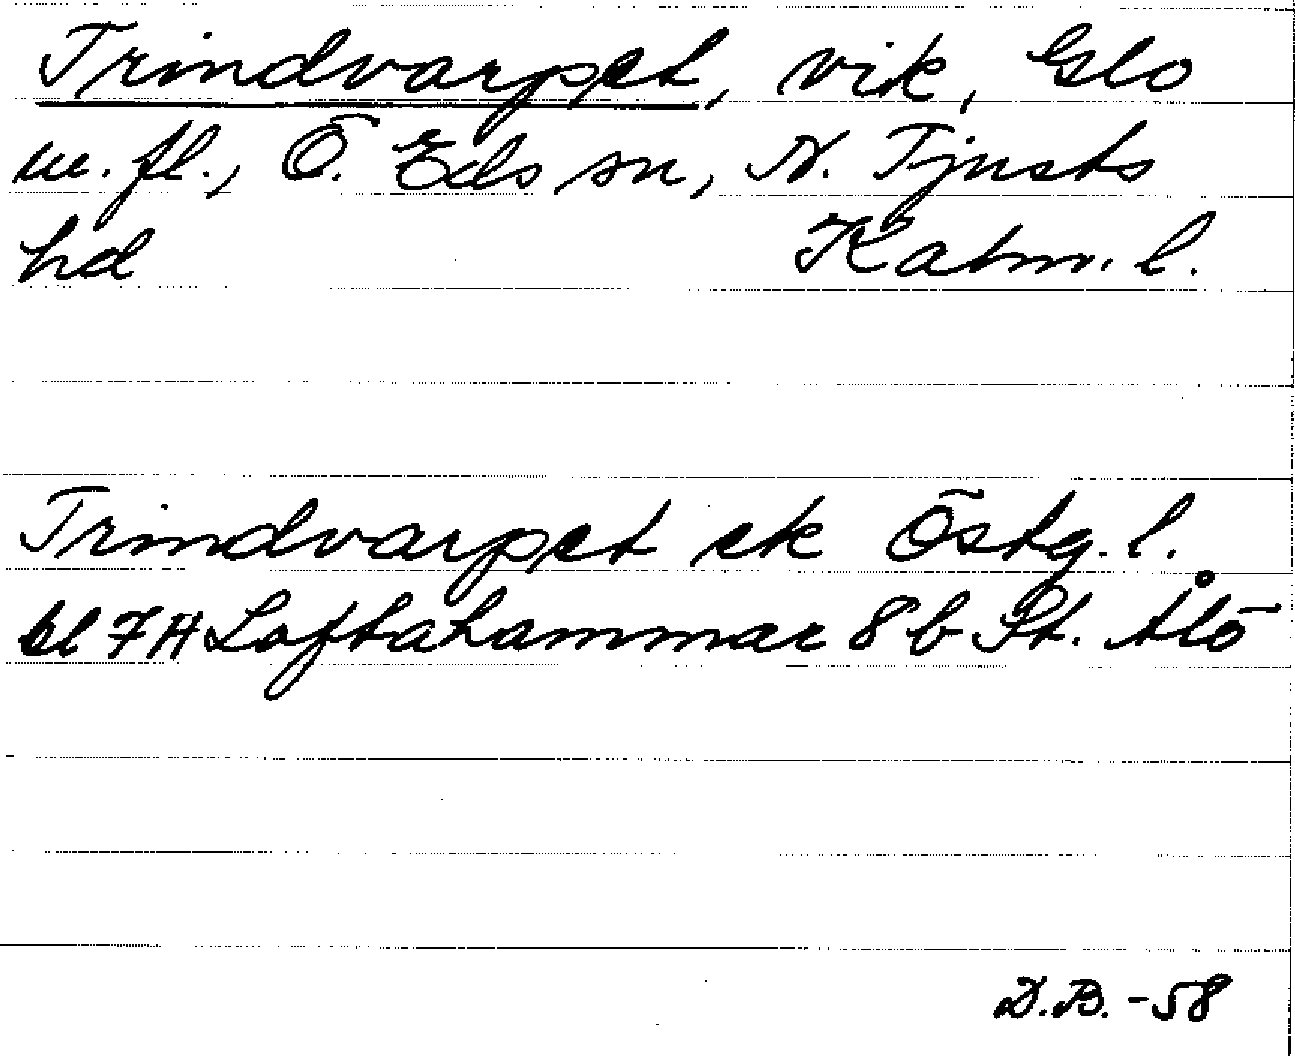 Trindvarpet, vik, Glo
m.fl., Ö. Eds sn, N. Tjusts
hd Kalm. l.
Trindvarpet ek Östg. l.
bl 7H Loftahammar 8b St. Ålö
D.B. -58